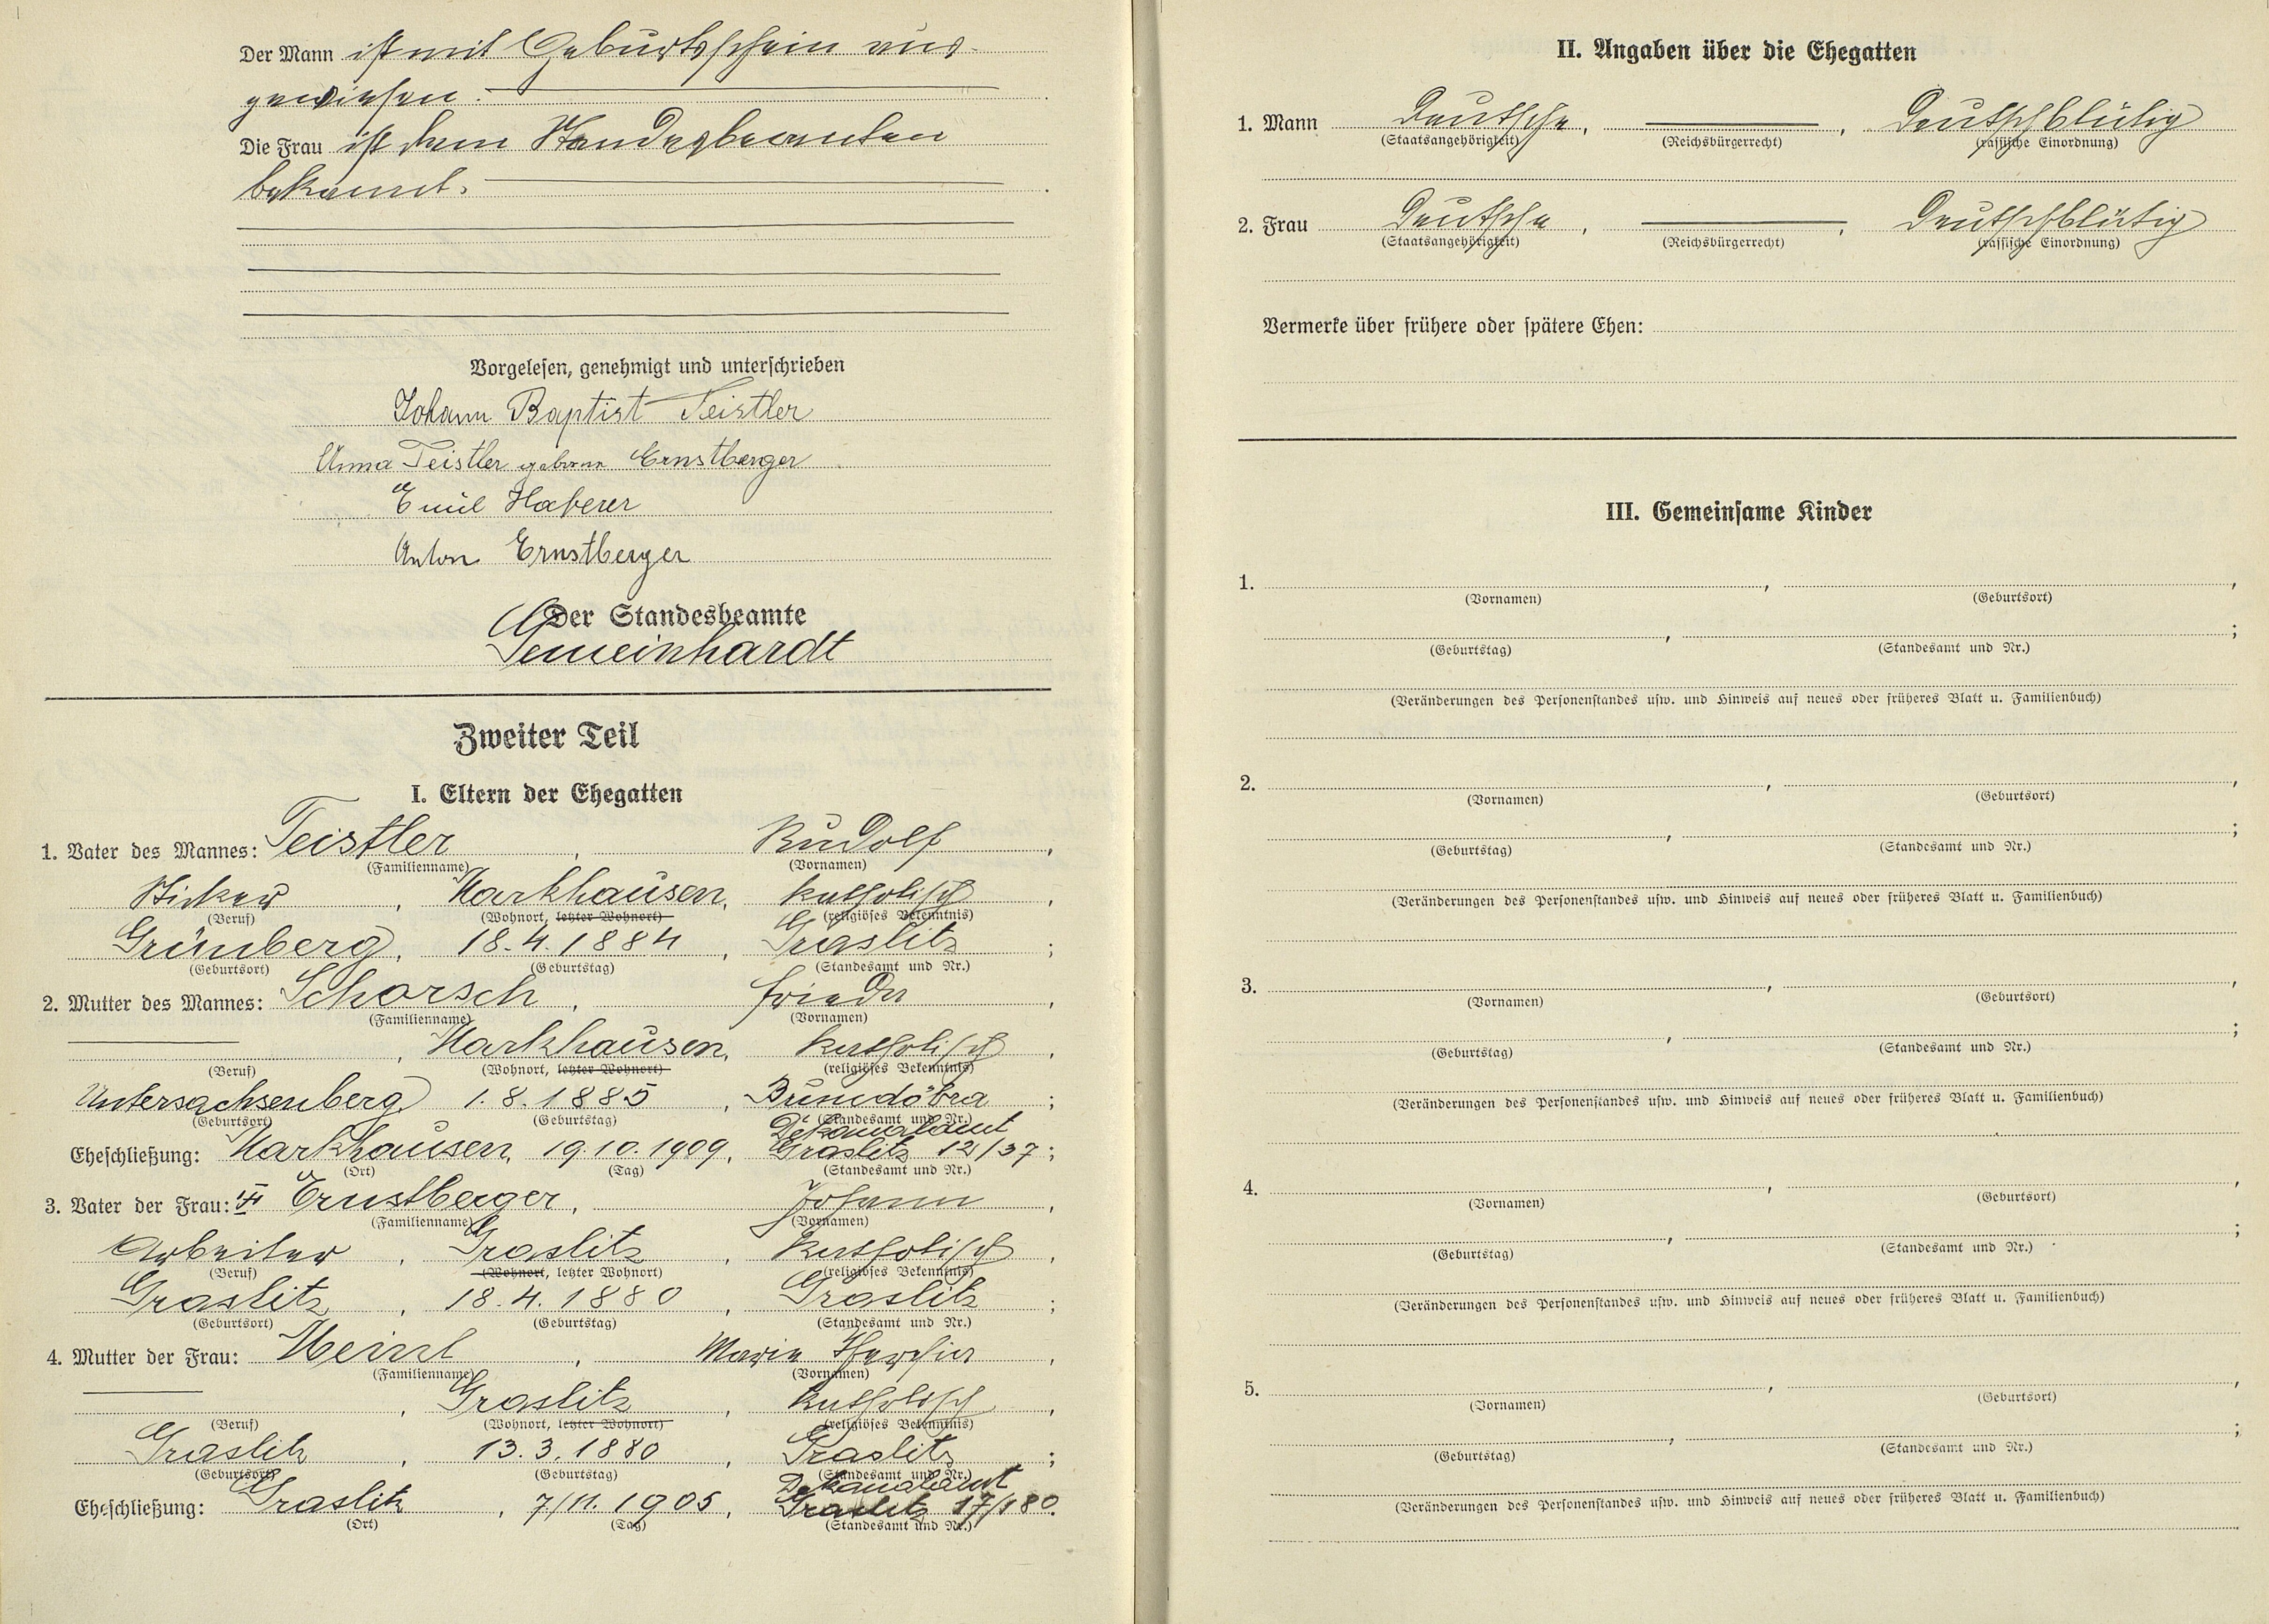 Der Mann ist mit Geburtsschein aus-
gewiesen.
Die Frau ist dem Standesbeamten
bekannt.
Vorgelesen, genehmigt und unterschrieben
Johann Baptist Teistler
Anna Teistler geborne Ernstberger
Emil Haberer
Anton Ernstberger
Der Standesbeamte
Gemeinhardt
Zweiter Teil
I. Eltern der Ehegatten
1. Vater des Mannes: Teistler, Rudolf,
(Familienname) (Vornamen)
Sticker, Markhausen, katholisch,
(Beruf) (Wohnort, letzter Wohnort) (religiöses Bekenntnis)
Grünberg, 18.4.1884, Graslitz;
(Geburtsort) (Geburtstag) (Standesamt und Nr.)
2. Mutter des Mannes: Schorsch, Frieda,
(Familienname) (Vornamen)
, Markhausen, katholisch,
(Beruf) (Wohnort, letzter Wohnort) (religiöses Bekenntnis)
Untersachsenberg, 1.8.1885, Brundöbra;
(Geburtsort) (Geburtstag) (Standesamt und Nr.)
Dekanalamt
Eheschließung: Markhausen, 19.10.1909, Graslitz 12/37;
(Ort) (Tag) (Standesamt und Nr.)
3. Vater der Frau: Ernstberger, Johann,
(Familienname) (Vornamen)
Arbeiter, Graslitz, katholisch,
(Beruf) (Wohnort, letzter Wohnort) (religiöses Bekenntnis)
Graslitz, 18.4.1880, Graslitz;
(Geburtsort) (Geburtstag) (Standesamt und Nr.)
4. Mutter der Frau: Meinl, Marie Theresia,
(Familienname) (Vornamen)
, Graslitz, katholisch,
(Beruf) (Wohnort, letzter Wohnort) (religiöses Bekenntnis)
Graslitz, 13.3.1880, Graslitz;
(Geburtsort) (Geburtstag) (Standesamt und Nr.)
Dekanalamt
Eheschließung: Graslitz, 7./11.1905, Graslitz 17/180.
(Ort) (Tag) (Standesamt und Nr.)
II. Angaben über die Ehegatten
1. Mann Deutsche, , Deutschblütig
(Staatsangehörigkeit) (Reichsbürgerrecht) (rassische Einordnung)
2. Frau Deutsche, , Deutschblütig
(Staatsangehörigkeit) (Reichsbürgerrecht) (rassische Einordnung)
Vermerke über frühere oder spätere Ehen:
III. Gemeinsame Kinder
1. , ,
(Vornamen) (Geburtsort)
, ;
(Geburtstag) (Standesamt und Nr.)
(Veränderungen des Personenstandes usw. und Hinweis auf neues oder früheres Blatt u. Familienbuch)
2. , ,
(Vornamen) (Geburtsort)
, ;
(Geburtstag) (Standesamt und Nr.)
(Veränderungen des Personenstandes usw. und Hinweis auf neues oder früheres Blatt u. Familienbuch)
3. , ,
(Vornamen) (Geburtsort)
, ;
(Geburtstag) (Standesamt und Nr.)
(Veränderungen des Personenstandes usw. und Hinweis auf neues oder früheres Blatt u. Familienbuch)
4. , ,
(Vornamen) (Geburtsort)
, ;
(Geburtstag) (Standesamt und Nr.)
(Veränderungen des Personenstandes usw. und Hinweis auf neues oder früheres Blatt u. Familienbuch)
5. , ,
(Vornamen) (Geburtsort)
, ;
(Geburtstag) (Standesamt und Nr.)
(Veränderungen des Personenstandes usw. und Hinweis auf neues oder früheres Blatt u. Familienbuch)